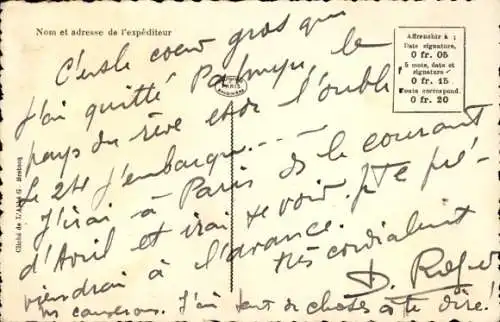 Nom et adresse de l'expéditeur
Affranchir à :
Date signature,
0 fr. 05
5 mots, date et
signature
0 fr. 15
Toute correspond.
0 fr. 20
PARIS
Cliché de L'Abbé G.
C'est le coeur gros que
j'ai quitté Palmyre, le
pays du rêve et de l'oubli
Le 24 j'embarque...
J'irai à Paris ds le courant
d'Avril et irai te voir. Je te pré-
viendrai à l'avance.
nous causerons. J'ai tant de choses à te dire!
très cordialement
D.